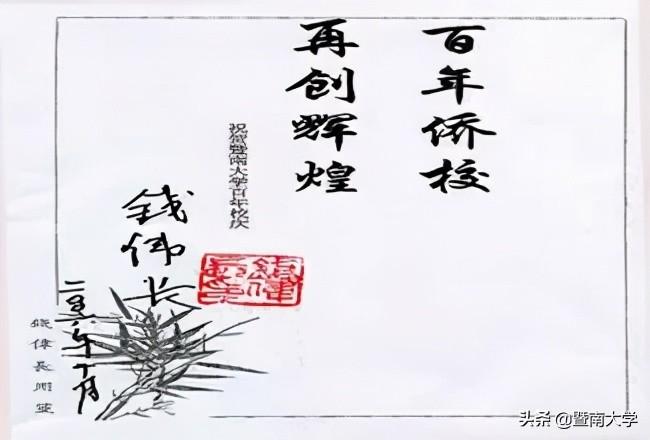 百年侨校
再创辉煌
祝贺暨南大学百年校庆
钱伟长
二〇〇六年十月
钱伟长用笺
头条 @暨南大学